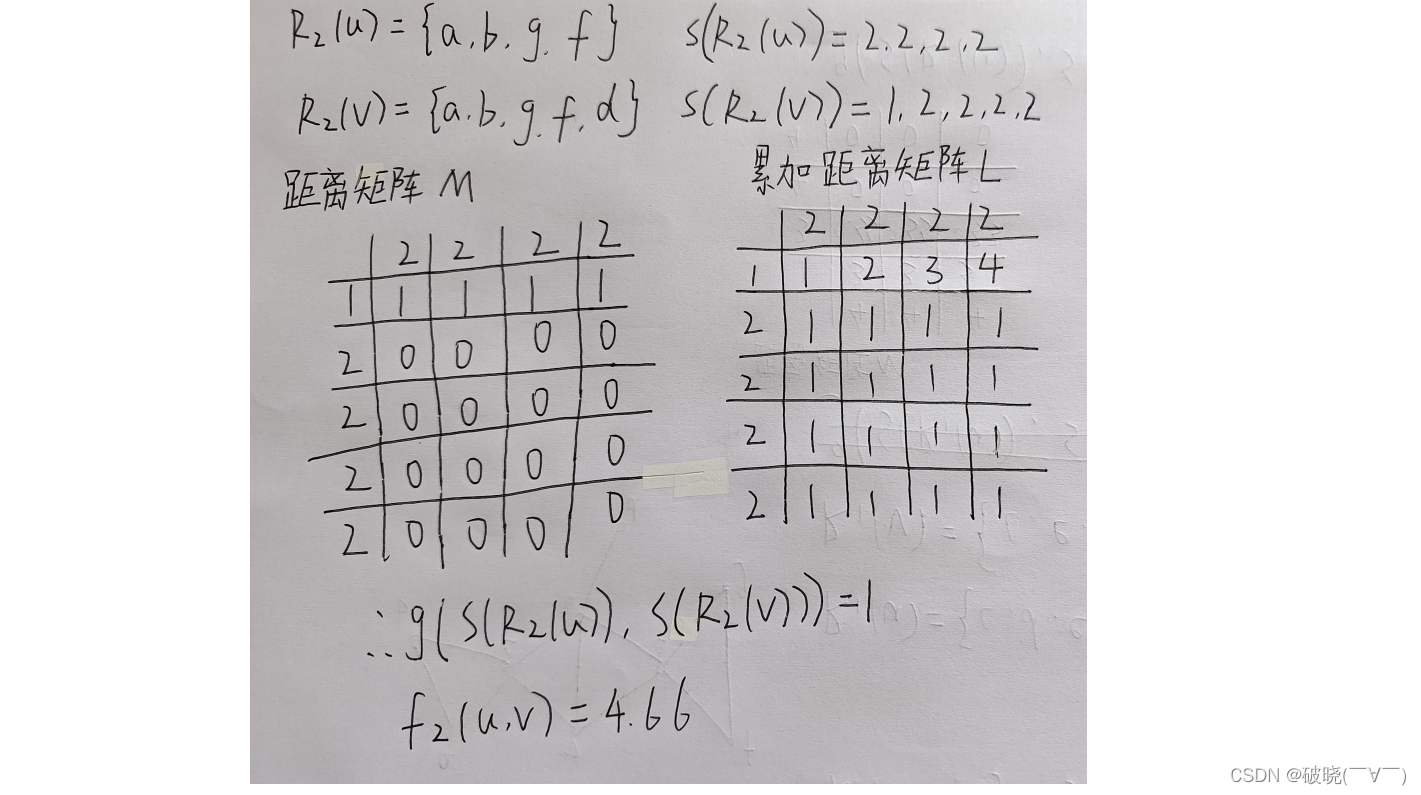 R₂(u)={a.b.g.f} S(R₂(u))=2.2,2,2
R₂(v)={a.b.g.f,d} S(R₂(v))=1,2,2,2,2
距离矩阵 M
累加距离矩阵 L
2 2 2 2
1 1 1 1 1
2 0 0 0 0
2 0 0 0 0
2 0 0 0 0
2 0 0 0 0
2 2 2 2
1 1 2 3 4
2 1 1 1 1
2 1 1 1 1
2 1 1 1 1
2 1 1 1 1
∴g(S(R₂(u)),S(R₂(v)))=1
f₂(u,v)=4.66
CSDN @破晓(￣∀￣)